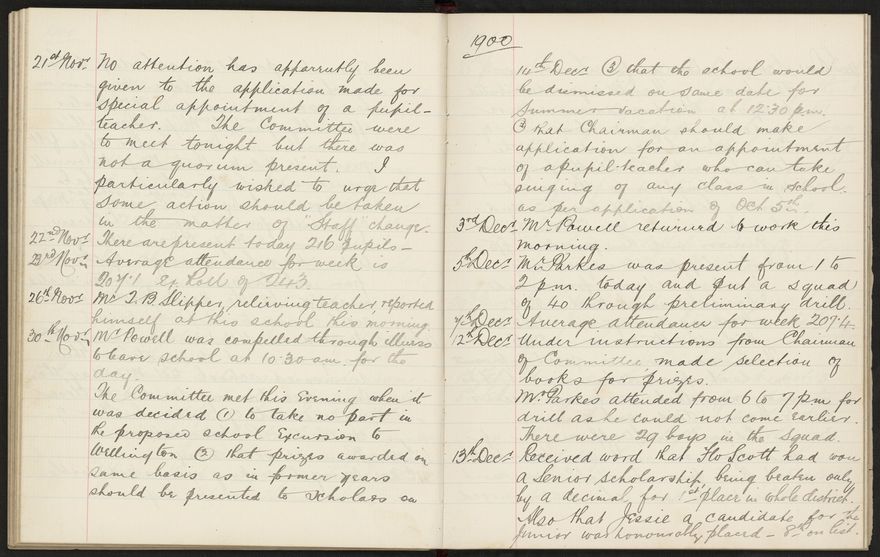 21st Novr No attention has apparrutly been
given to the application made for
special appointment of a pupil-
teacher. The Committee were
to meet tonight but there was
not a quorum present. I
particularly wished to urge that
some action should be taken
in the matter of "Staff" change.
22nd Novr There are present today 216 pupils -
23rd Novr Average attendance for week is
207.1 Ex Roll of 243.
26th Novr Mr T. B Slipper, relieving teacher, reported
himself at this school this morning.
30th Novr Mr Powell was compelled through illness
to leave school at 10-30 am. for the
day.
The Committee met this Evening when it
was decided (1) to take no part in
the proposed school Excursion to
Wellington (2) that prizes awarded on
same basis as in former years
should be presented to scholars on
1900
14th Decr (3) that the school would
be dismissed on same date for
Summer vacation at 12:30 pm.
that Chairman should make
application for an appointment
of a pupil-teacher who can take
singing of any class in school.
as per application of Oct 5th.
3rd Decr Mr Powell returned to work this
morning.
5th Decr Mr Parkes was present from 1 to
2 pm. today and put a squad
of 40 through preliminary drill.
7th Decr Average attendance for week 207.4.
Decr Under instructions from Chairman
of Committee, made selection of
books for prizes.
Mr Parkes attended from 6 to 7 pm for
drill as he could not come earlier.
There were 29 boys in the Squad.
13th Decr Received word that Flo Scott had won
a Senior Scholarship, being beaten only
by a decimal, for 1st place in whole district.
Also that Jessie a candidate for the
Junior was honourably placed - 8th on list.